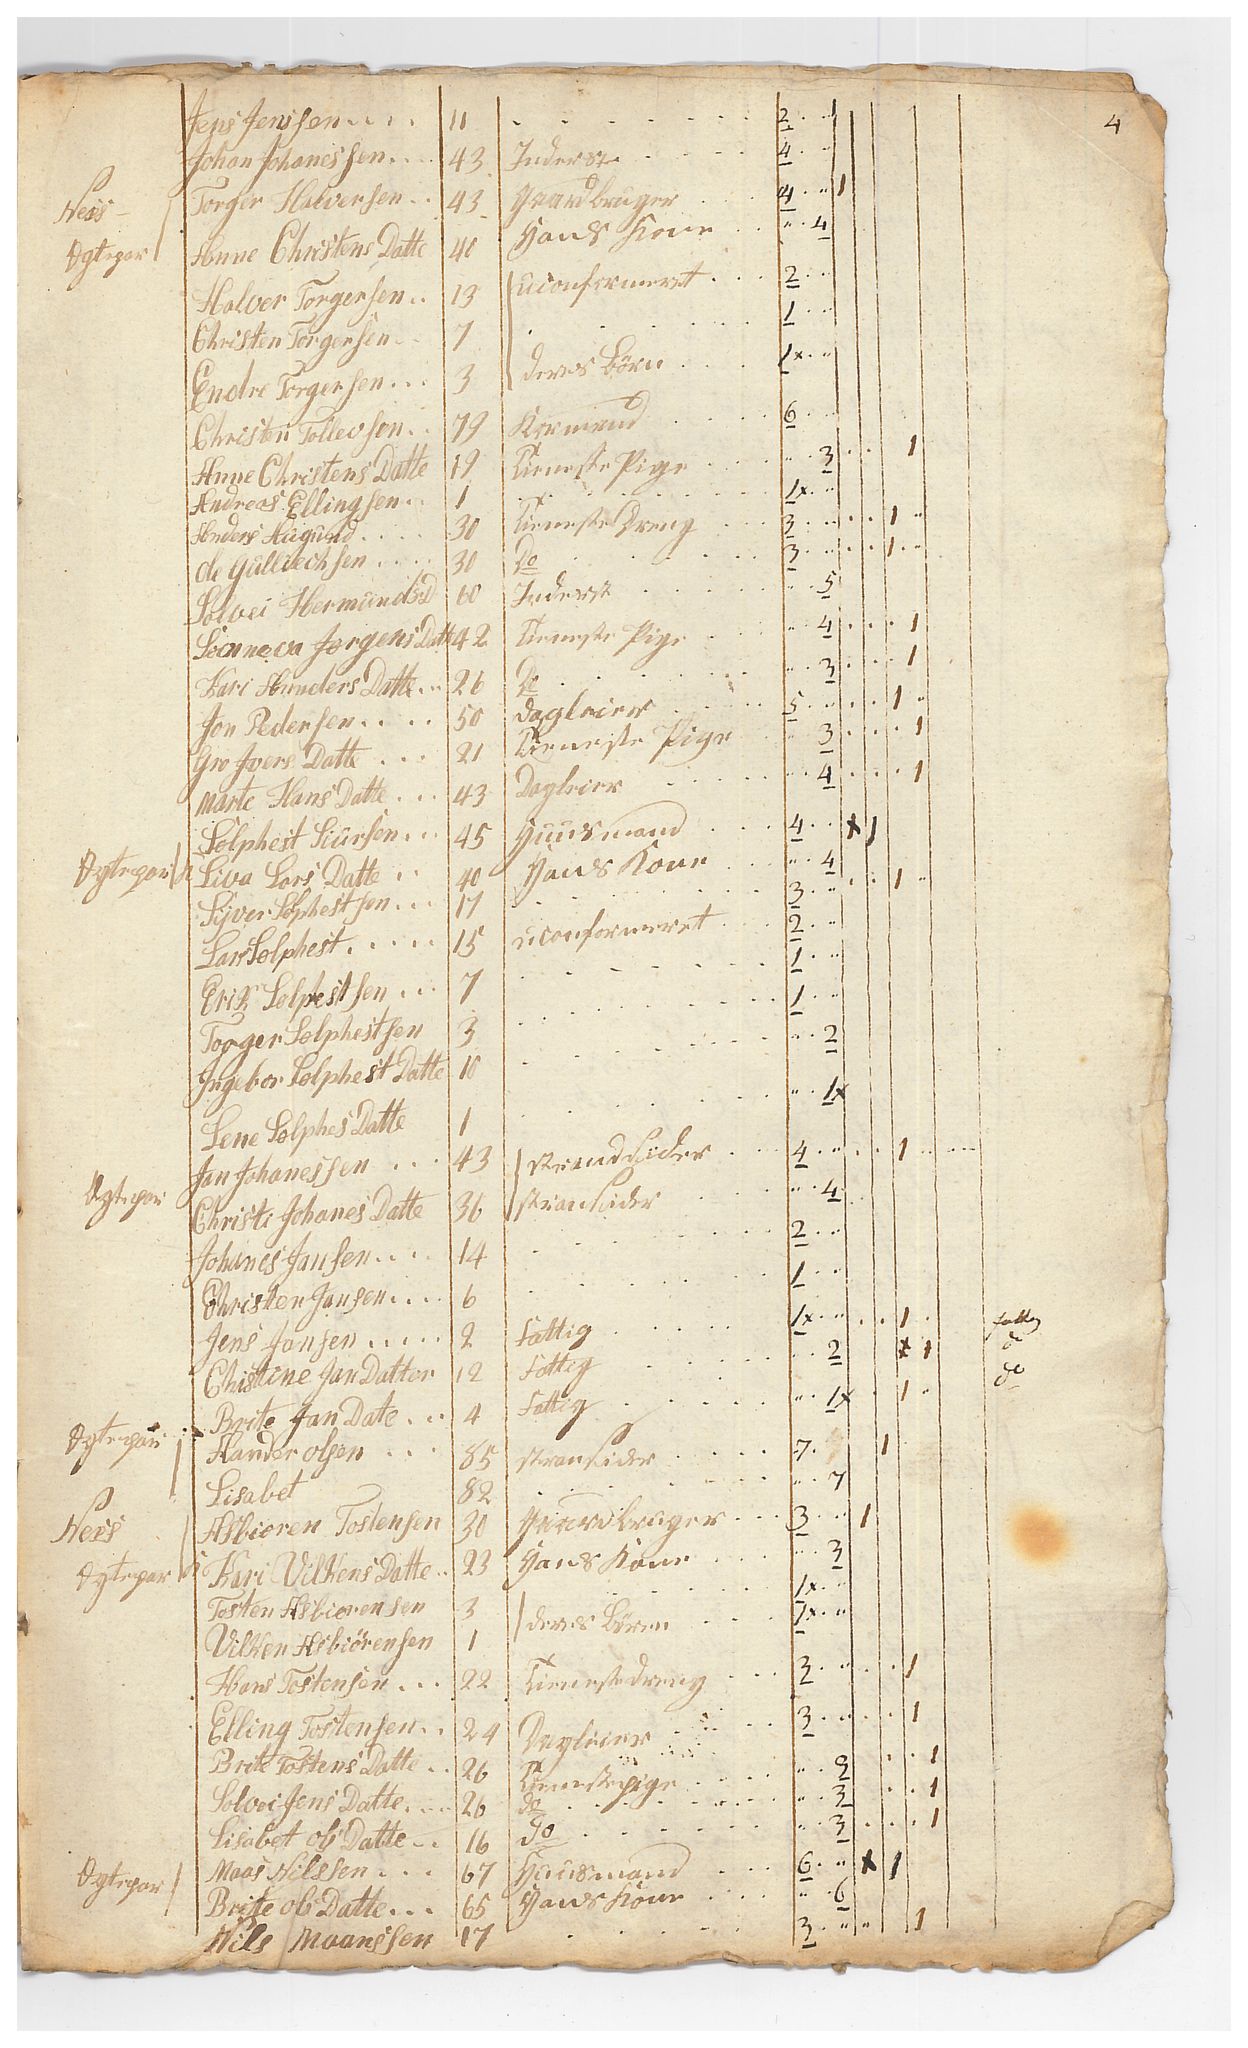 4
Jens Jensen 11 2 "
Johan Johanessen 43 Inderste 4 "
Ness Torger Halversen 43 Gaardbruger 4 " 1
Ægtepar Anne Christens Datte 40 Hans Kone " 4
Halver Torgersen 13 uconformeret 2 "
Christen Torgersen 7 1 "
Endre Torgersen 3 deres Börn 1x "
Christen Tollevsen 79 Karmand 6 "
Anne Christens Datte 19 Tieneste Pige " 3 1
Andreas Ellingsen 1 1x "
Anders Augund 30 Tieneste Dreng 3 " 1 "
ole Gulliechsen 30 Do 3 " 1 "
Solvei Hermunds D 60 Inderst " 5
Sønneva Jørgens Datt 42 Tieneste Pige " 4 1
Kari Anders Datte 26 Do " 3 1
Jon Pedersen 50 dagleier 5 " 1 "
Gro Ivers Datte 21 Tieneste Pige " 3 1
Marte Hans Datte 43 Dagleier " 4 1
Sølphest Siursen 45 Huusmand 4 " x 1
Ægtepar Liva Lars Datte 40 Hans Kone " 4
Siver Sølphestsen 17 3 " 1 "
Lars Sølphest 15 uconformeret 2 "
Erik Sølphestsen 7 1 "
Torger Sølphestsen 3 1 "
Ingebor Sølphest Datte 10 " 2
Lene Sølphes Datte 1 " 1x
Jan Johanessen 43 strandsider 4 " 1
Ægtepar Christi Johanes Datte 36 stransider " 4
Johanes Jansen 14 2 "
Christen Jansen 6 1 "
Jens Jansen 2 Fattig 1x " 1 fattig
Christine Jan Datter 12 Fattig " 2 x 1 do
Brite Jan Date 4 Fattig " 1x 1 " do
Ægtepar Hander olsen 85 stransider 7 1
Lisabet 82 " 7
Ness Asbioren Tostensen 30 Gaardbruger 3 " 1
Ægtepar Kari Vilkens Datte 23 Hans Kone " 3
Tosten Asbiorensen 3 1x "
Vilken Asbiörensen 1 deres Börn 1x "
Hans Tostensen 22 Tienestedreng 3 " 1
Elling Tostensen 24 Dagleier 3 " 1
Brite Tostens Datte 26 Tienestepige " 3 1
Solvei Jens Datte 26 do " 3 1
Lisabet ols Datte 16 do " 3 1
Ægtepar Maas Nilssen 67 Huusmand 6 " x 1
Brite ols Datte 65 Hans Kone " 6
Nils Maanssen 17 3 " " 1